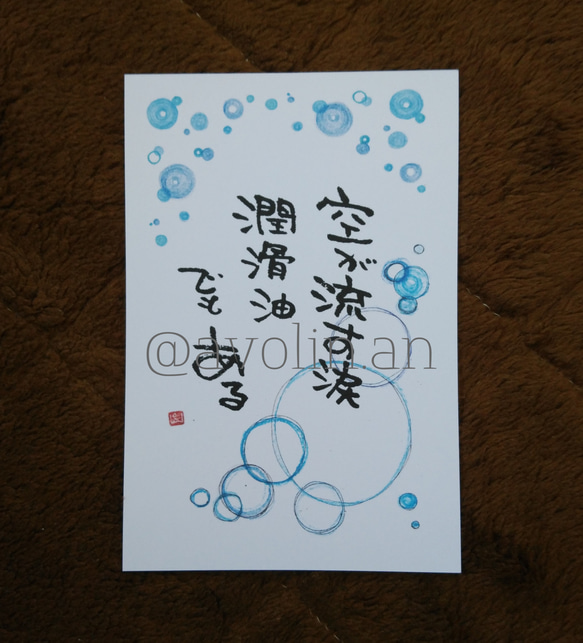 空が流す涙
潤滑油
でも
ある
@ayolin.an